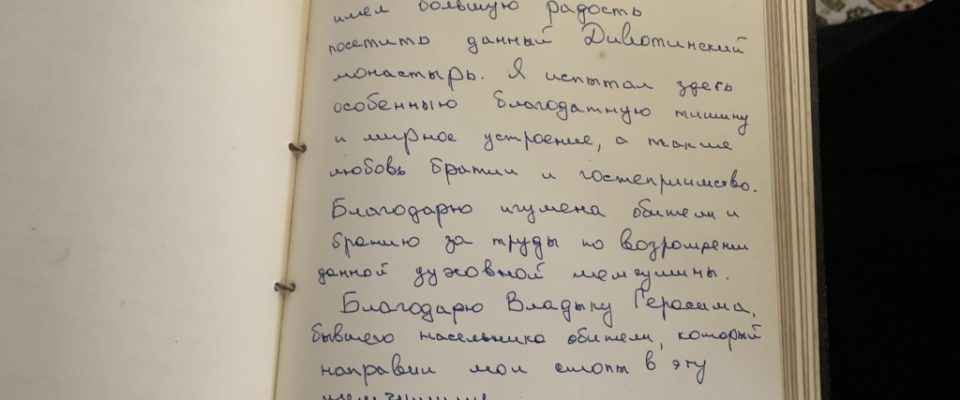 имел большую радость
посетить данный Дивотинский
монастырь. Я испытал здесь
особенную благодатную тишину
и мирное устроение, а также
любовь братии и гостеприимство.
Благодарю игумена обители и
братию за труды по возрождении
данной духовной жемчужины.
Благодарю Владыку Герасима,
бывшего насельника обители, который
направил мои стопы в эту